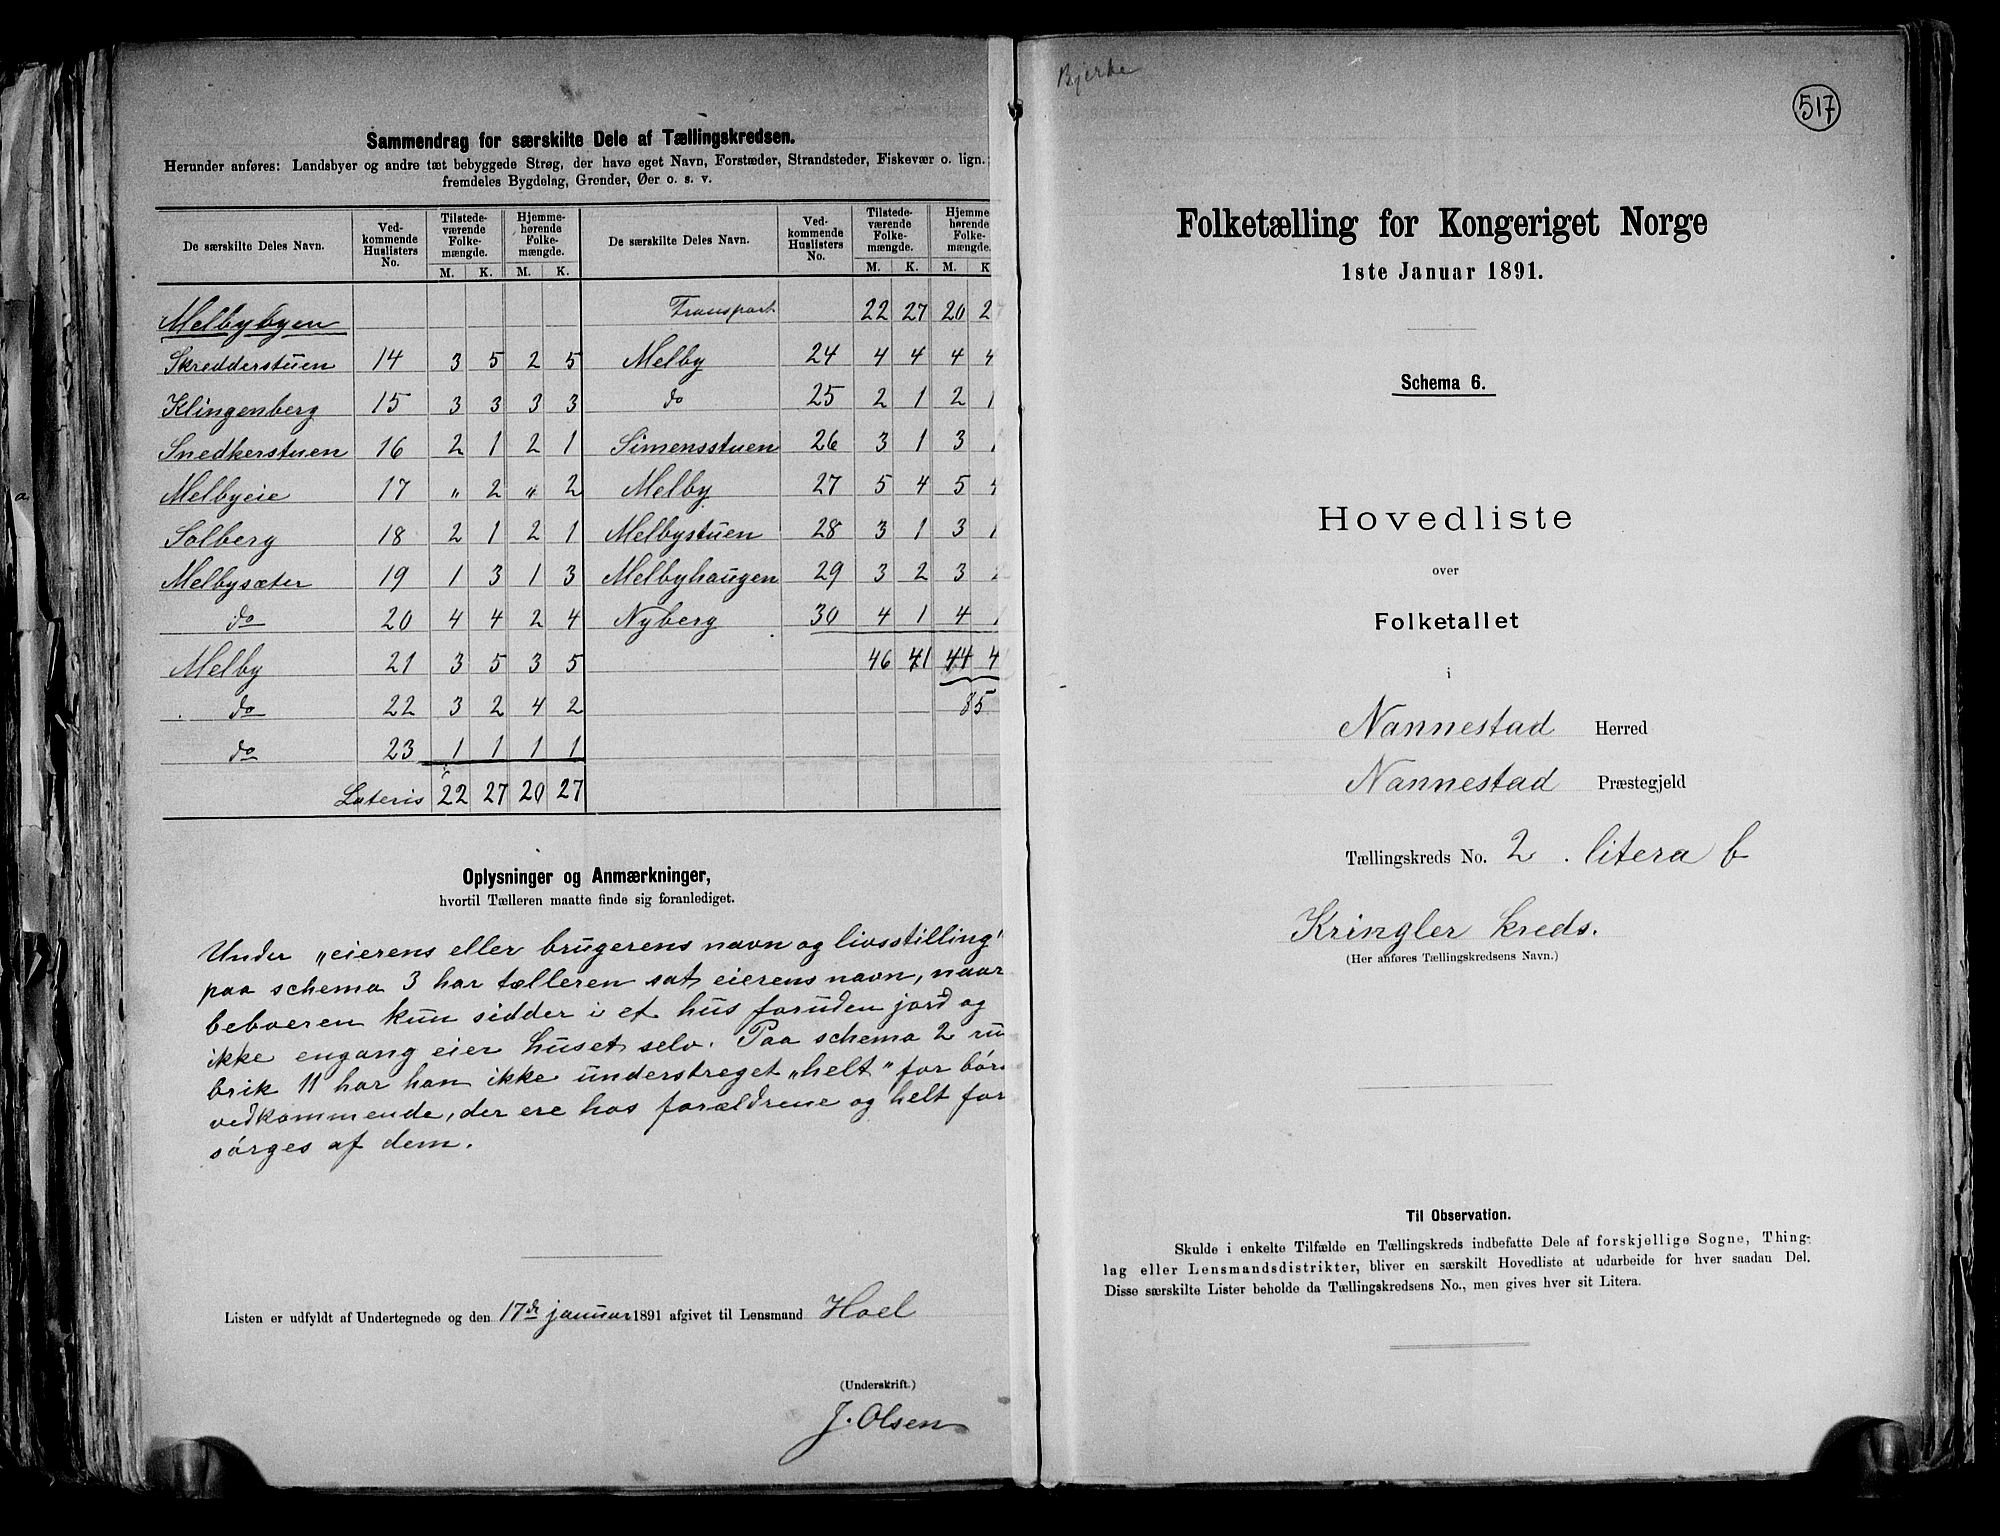 Sammendrag for særskilte Dele af Tællingskredsen.
Herunder anføres: Landsbyer og andre tæt bebyggede Strøg, der have eget Navn, Forstæder, Strandsteder, Fiskevær o. lign.;
fremdeles Bygdelag, Grender, Øer o. s. v.
De særskilte Deles Navn. Ved-kommende Huslisters No. Tilstede-værende Folke-mængde. M. K. Hjemme-hørende Folke-mængde. M. K.
Melbybyen
Skredderstuen 14 3 5 2 5
Klingenberg 15 3 3 3 3
Snedkerstuen 16 2 1 2 1
Melbyeie 17 „ 2 „ 2
Solberg 18 2 1 2 1
Melbysæter 19 1 3 1 3
do 20 4 4 2 4
Melby 21 3 5 3 5
do 22 3 2 4 2
do 23 1 1 1 1
Lateris 22 27 20 27
De særskilte Deles Navn. Ved-kommende Huslisters No. Tilstede-værende Folke-mængde. M. K. Hjemme-hørende Folke-mængde. M. K
Transport 22 27 20 27
Melby 24 4 4 4 4
do 25 2 1 2 1
Simensstuen 26 3 1 3 1
Melby 27 5 4 5 4
Melbystuen 28 3 1 3 1
Melbyhaugen 29 3 2 3 2
Nyberg 30 4 1 4 1
46 41 44 4
85
Oplysninger og Anmærkninger,
hvortil Tælleren maatte finde sig foranlediget.
Under „eierens eller brugerens navn og livsstilling"
paa schema 3 har tælleren sat eierens navn, naar
beboeren kun sidder i et hus foruden jord og
ikke engang eier huset selv. Paa schema 2 ru
brik 11 har han ikke understreget „helt" for børn
vedkommende, der ere hos forældrene og helt for
sørges af dem.
Listen er udfyldt af Undertegnede og den 17de januar 1891 afgivet til Lensmand Hoel
(Underskrift.)
J. Olsen
Bjerke
517
Folketælling for Kongeriget Norge
1ste Januar 1891.
Schema 6.
Hovedliste
over
Folketallet
i
Nannestad Herred
Nannestad Præstegjeld
Tællingskreds No. 2. litera b
Kringler kreds.
(Her anføres Tællingskredsens Navn.)
Til Observation.
Skulde i enkelte Tilfælde en Tællingskreds indbefatte Dele af forskjellige Sogne, Thing-
lag eller Lensmandsdistrikter, bliver en særskilt Hovedliste at udarbeide for hver saadan Del.
Disse særskilte Lister beholde da Tællingskredsens No., men gives hver sit Litera.